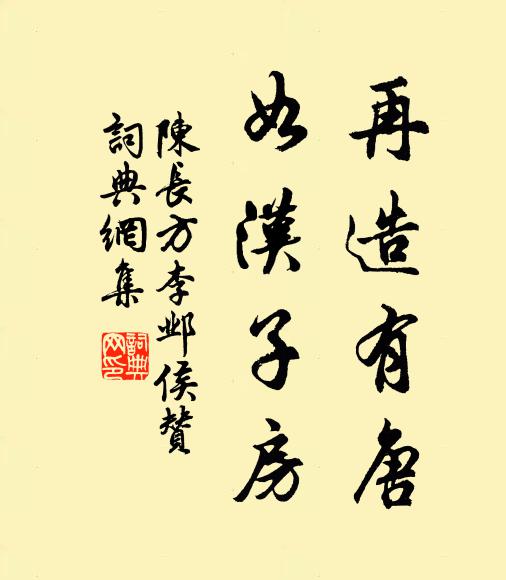 再造有唐
如漢子房
陳長方李邺侯贊
詞典網集
詞典网印